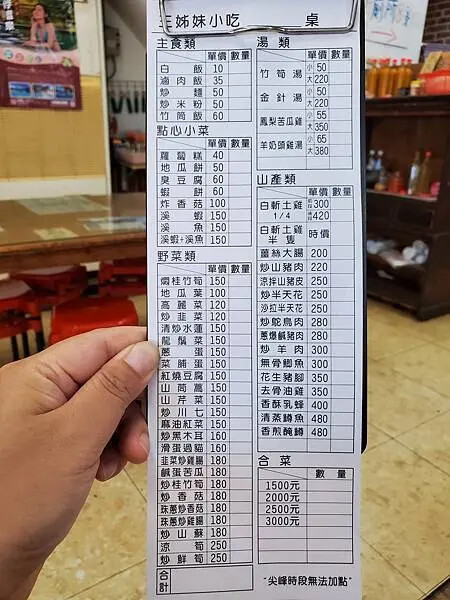 三姊妹小吃 桌
主食類 單價 數量
白飯 10
滷肉飯 35
炒麵 50
炒米粉 50
竹筒飯 60
點心小菜 單價 數量
蘿蔔糕 40
地瓜餅 50
臭豆腐 60
蝦餅 60
炸香菇 100
溪蝦 150
溪魚 150
溪蝦+溪魚 150
野菜類 單價 數量
燜桂竹筍 150
地瓜葉 100
高麗菜 120
炒韭菜 120
清炒水蓮 150
龍鬚菜 150
蔥蛋 150
菜脯蛋 150
紅燒豆腐 150
山茼蒿 150
山芹菜 150
炒川七 150
麻油紅菜 150
炒黑木耳 160
滑蛋過貓 160
韭菜炒雞腸 180
鹹蛋苦瓜 180
炒桂竹筍 180
炒香菇 180
珠蔥炒香菇 180
珠蔥炒雞腸 180
炒山蘇 180
涼筍 250
炒鮮筍 250
合計
湯類 單價 數量
竹筍湯 小50 大220
金針湯 小50 大220
鳳梨苦瓜雞 小55 大350
羊奶頭雞湯 小65 大380
山產類 單價 數量
白斬土雞 1/4 300 420
白斬土雞 半隻 時價
薑絲大腸 200
炒山豬肉 220
涼拌山豬皮 250
炒半天花 250
沙拉半天花 250
炒鴕鳥肉 280
蔥爆鹹豬肉 280
炒羊肉 300
無骨鯽魚 300
花生豬腳 350
去骨油雞 350
香酥乳蜂 400
清蒸鱒魚 480
香煎醃鱒 480
合菜
數量
1500元
2000元
2500元
3000元
"尖峰時段無法加點"